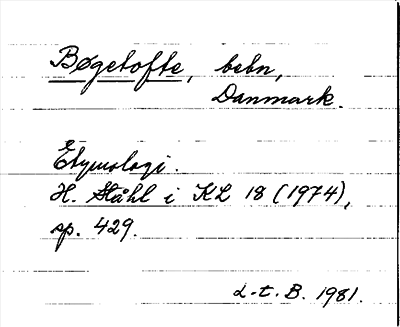 Bøgetofte, bebn,
Danmark.
Etymologi.
H. Ståhl i KL 18 (1974),
sp. 429.
L-t. B. 1981.